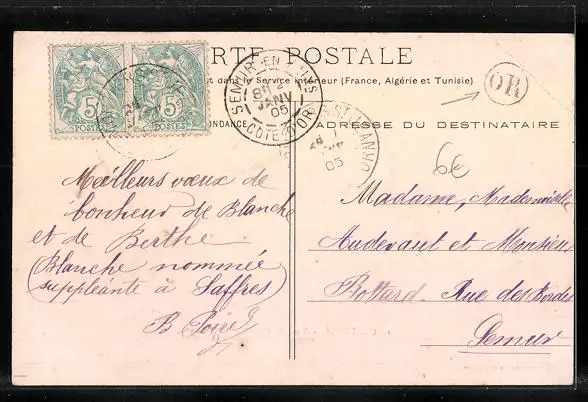 CARTE POSTALE
dans le Service intérieur (France, Algérie et Tunisie)
OR
5c 5c
POSTES POSTES
SEMUR-EN-
JANV
05
COTE-D'OR
05
ADRESSE DU DESTINATAIRE
6€
Meilleurs vœux de
bonheur de Blanche
et de Berthe
(Blanche nommée
suppléante à Saffres)
B
Madame, Mademoiselle
et Monsieur
Rue des Bordes
Semur